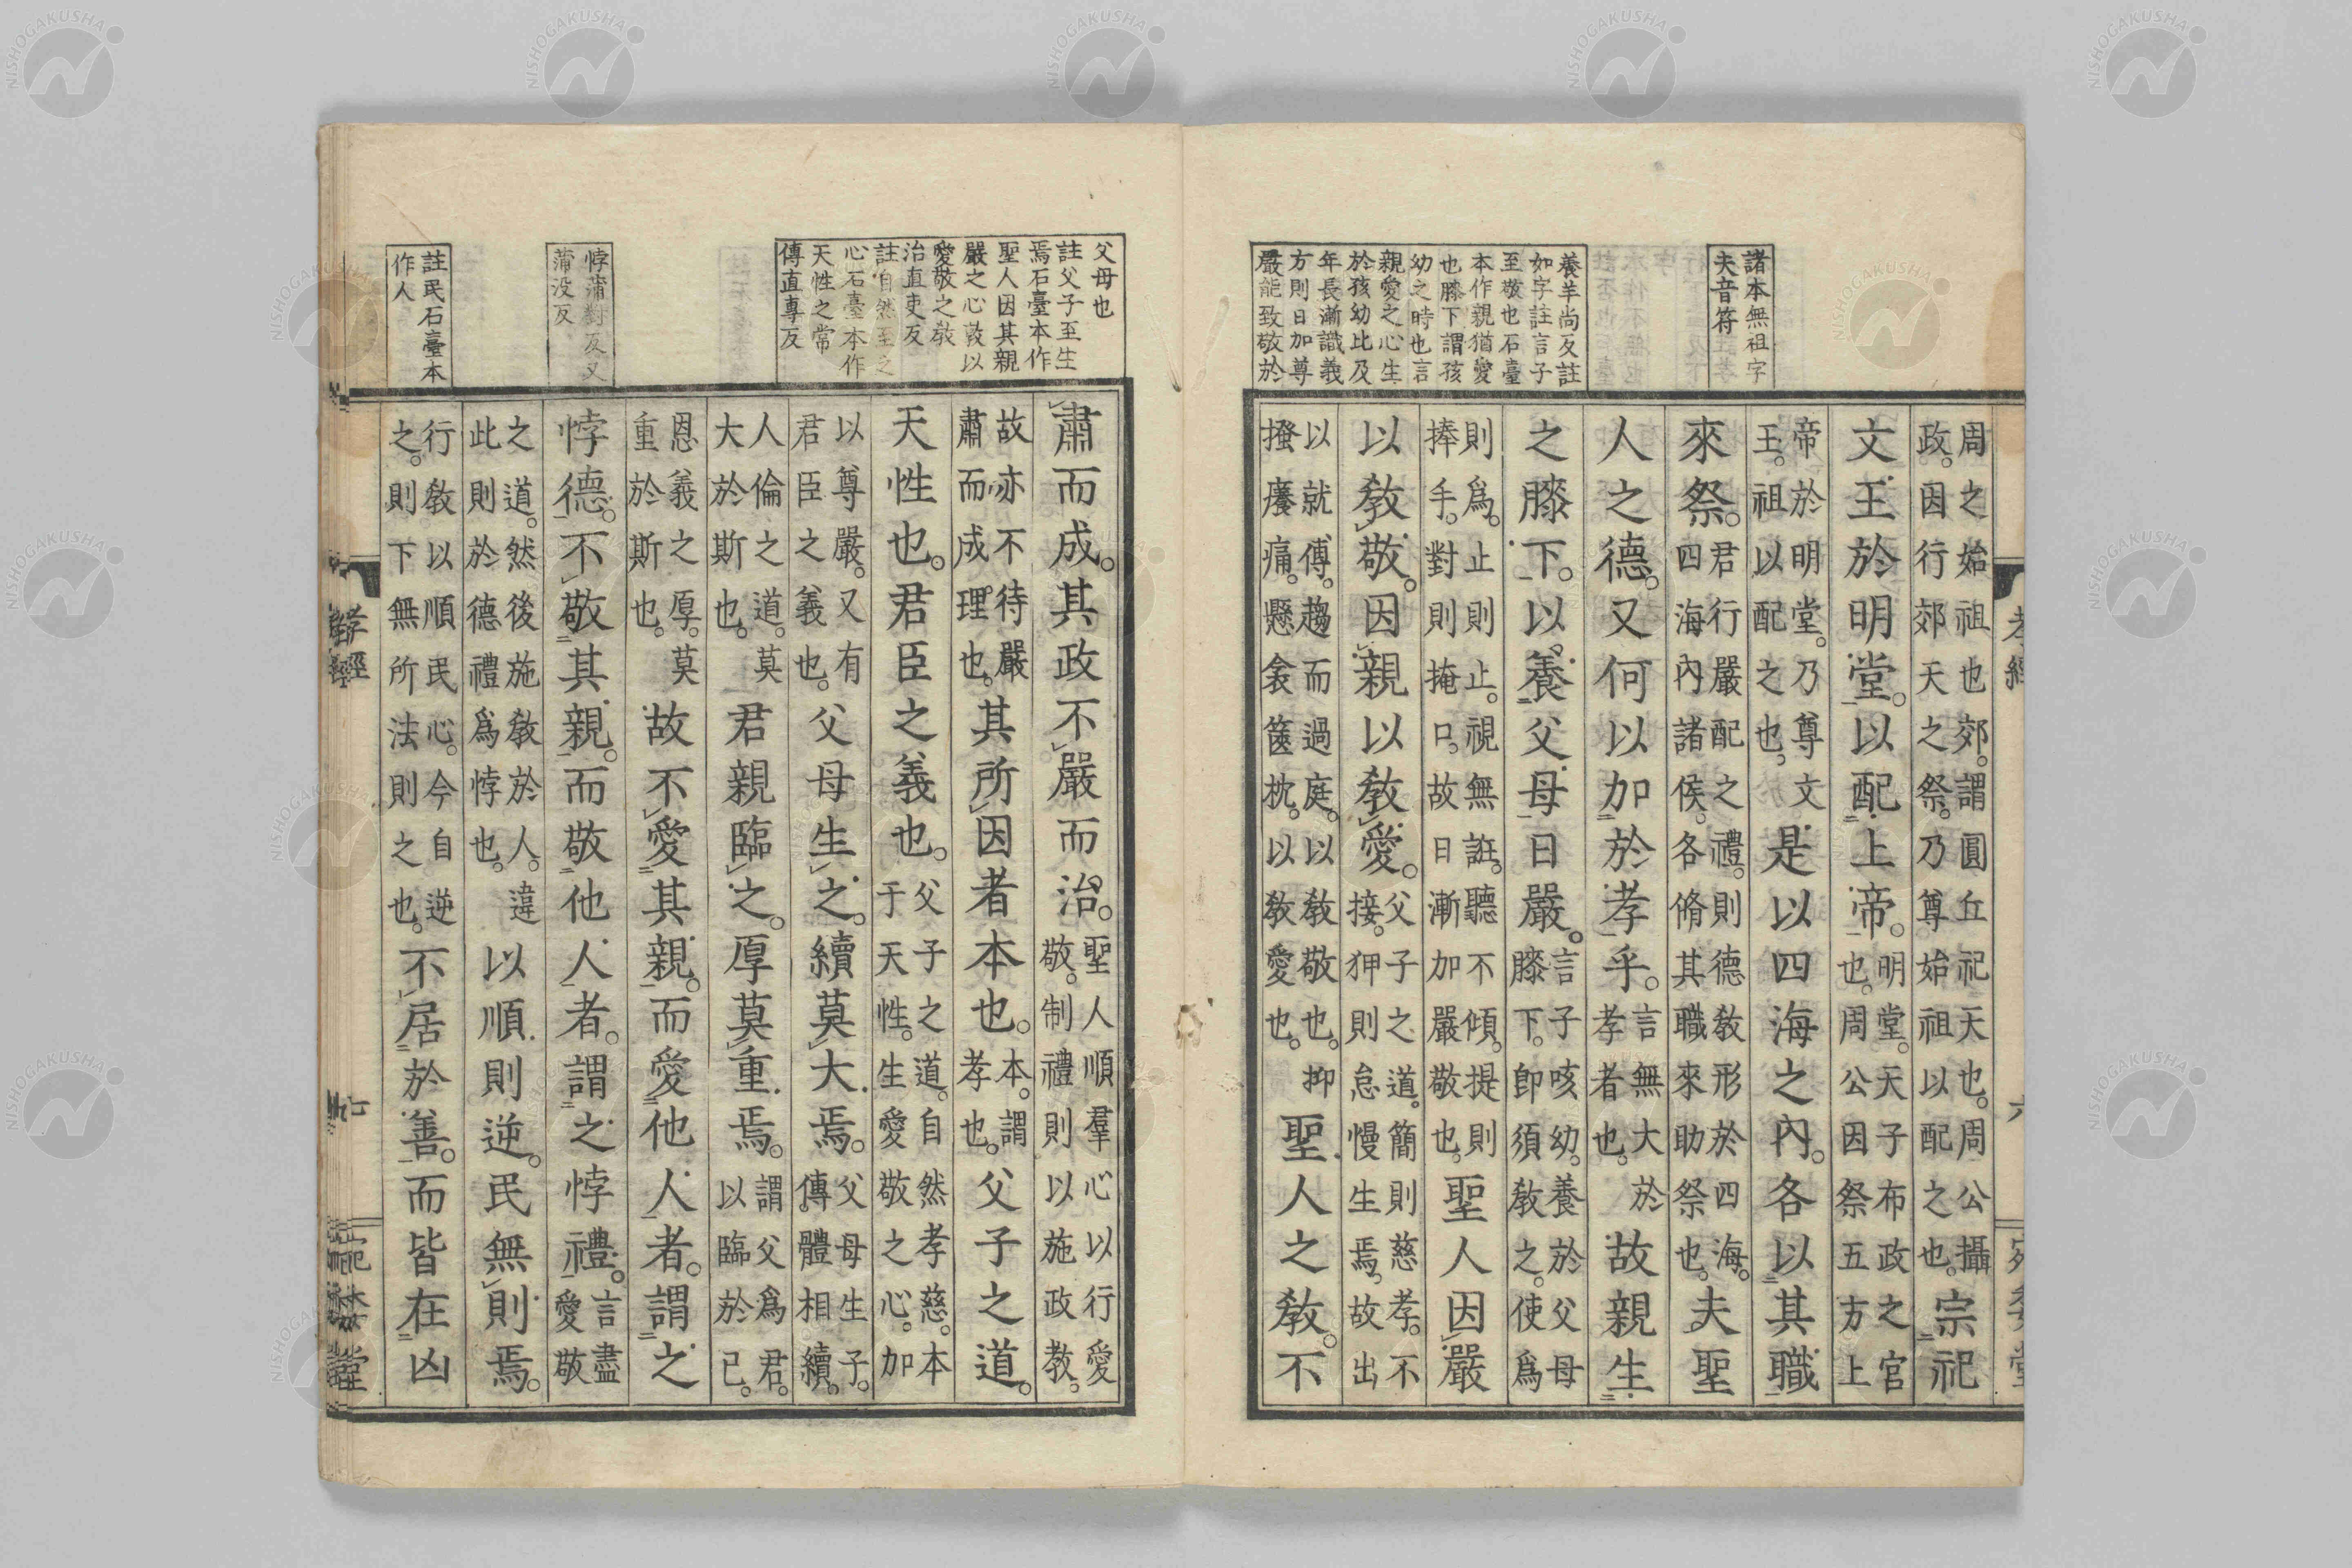 諸本無祖字
夫音符
養羊尚反註
如字註言子
至敬也石臺
本作親猶愛
也膝下謂孩
幼之時也言
親愛之心生
於孩幼比及
年長漸識義
方則日加尊
嚴能致敬於
周之始祖也郊。謂圓丘祀天也。周公攝
政。因行郊天之祭。乃尊始祖以配之也。宗祀
文王於明堂。以配上帝。明堂。天子布政之官
也。周公因祭五方上
帝於明堂。乃尊文
王。祖以配之也。是以四海之內。各以其職
來祭。君行嚴配之禮。則德教形於四海。
四海內諸侯。各脩其職來助祭也。夫聖
人之德。又何以加於孝乎。言無大於
孝者也。故親生
之膝下。以養父母日嚴。言子咳幼。養於父母
膝下。即須教之。使爲
則爲。止則止。視無誑。聽不傾。提則
捧手。對則掩口。故日漸加嚴敬也。聖人因嚴
以敎敬。因親以敎愛。父子之道。簡則慈孝。不
接。狎則怠慢生焉。故出
以就傅。趨而過庭。以敎敬也。抑
搔癢痛。懸衾篋枕。以敎愛也。聖人之敎。不
孝經
六
父母也
註父子至生
焉石臺本作
聖人因其親
嚴之心敦以
愛敬之敎
治直吏反
註自然至之
心石臺本作
天性之常
傳直專反
悖蒲對反又
蒲没反
註民石臺本
作人
肅而成。其政不嚴而治。聖人順羣心以行愛
敬。制禮則以施政敎。
故亦不待嚴
肅而成理也。其所因者本也。本。謂
孝也。父子之道。
天性也。君臣之義也。父子之道。自然孝慈。本
于天性。生愛敬之心。加
以尊嚴。又有
君臣之義也。父母生之。續莫大焉。父母生子。
傳體相續。
人倫之道。莫
大於斯也。君親臨之。厚莫重焉。謂父爲君。
以臨於已。
恩義之厚。莫
重於斯也。故不愛其親。而愛他人者。謂之
悖德。不敬其親。而敬他人者。謂之悖禮。言盡
愛敬
之道。然後施敎於人。違
此則於德禮爲悖也。以順則逆。民無則焉。
行敎以順民心。今自逆
之。則下無所法則之也。不居於善。而皆在凶
孝經